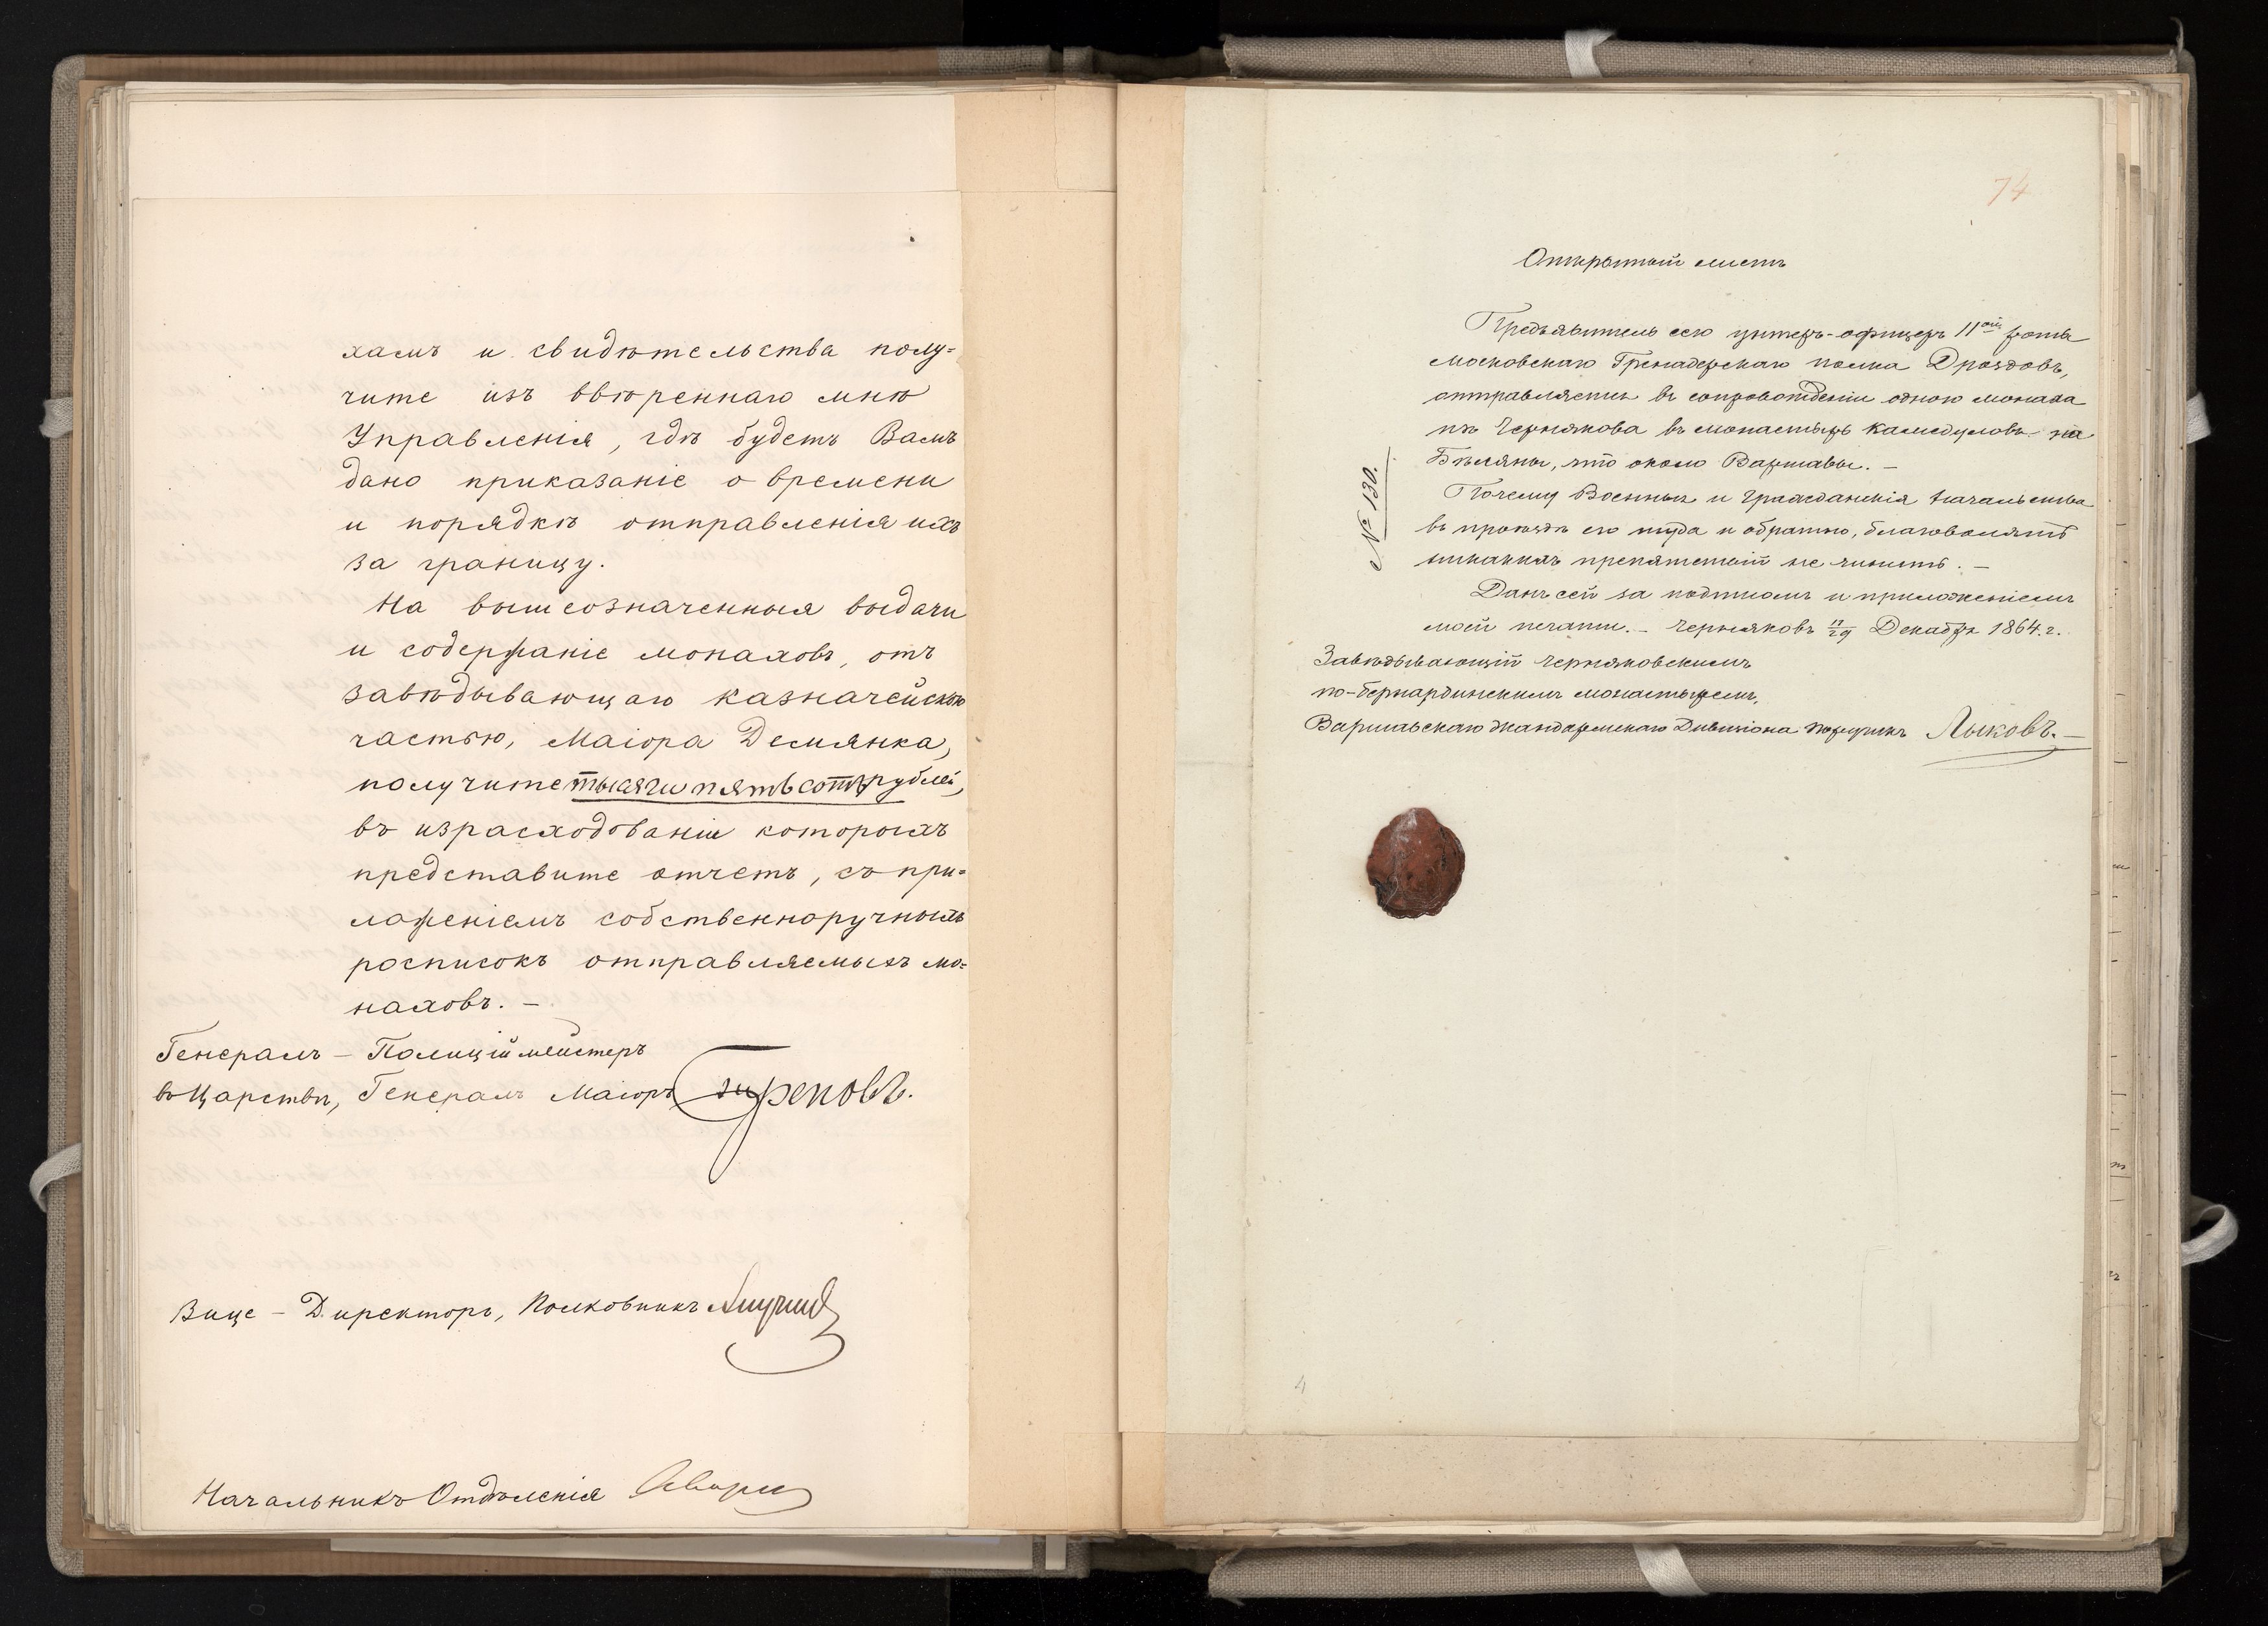 хамъ и свидѣтельства полу=
чите изъ ввѣреннаго мнѣ
Управленія, гдѣ будетъ Вамъ
дано приказаніе о времени
и порядкѣ отправленія ихъ
за границу.
На вышеозначенныя выдачи
и содержаніе монаховъ, отъ
завѣдывающаго казначейскою
частью, Маіора Демянка,
получите тысячи пять сотъ рублей,
въ израсходованіи которыхъ
представите отчетъ, съ при=
ложеніемъ собственноручныхъ
росписокъ отправляемыхъ мо=
наховъ. –
Генералъ – Полиціймейстеръ
въ Царствѣ, Генералъ Маіоръ Треповъ.
Вице – Директоръ, Полковникъ
Начальникъ Отдѣленія
74
Открытый листъ
Предъявитель сего унтеръ-офицеръ 11ой роты
Московскаго Гренадерскаго полка Дроздовъ,
отправляется въ сопровожденіи одного монаха
изъ Чернякова въ монастырь Камедуловъ на
Бѣляны, что около Варшавы. –
Почему Военныя и Гражданскія начальства
въ проѣздѣ его туда и обратно, благоволятъ
никакихъ препятствій не чинить. –
Данъ сей за подписомъ и приложеніемъ
моей печати. – Черняковъ 17/29 Декабря 1864 г.
№ 130.
Завѣдывающій Черняковскимъ
по-бернардинскимъ монастыремъ,
Варшавскаго Жандармскаго Дивизіона Поручикъ Лыковъ. –
4